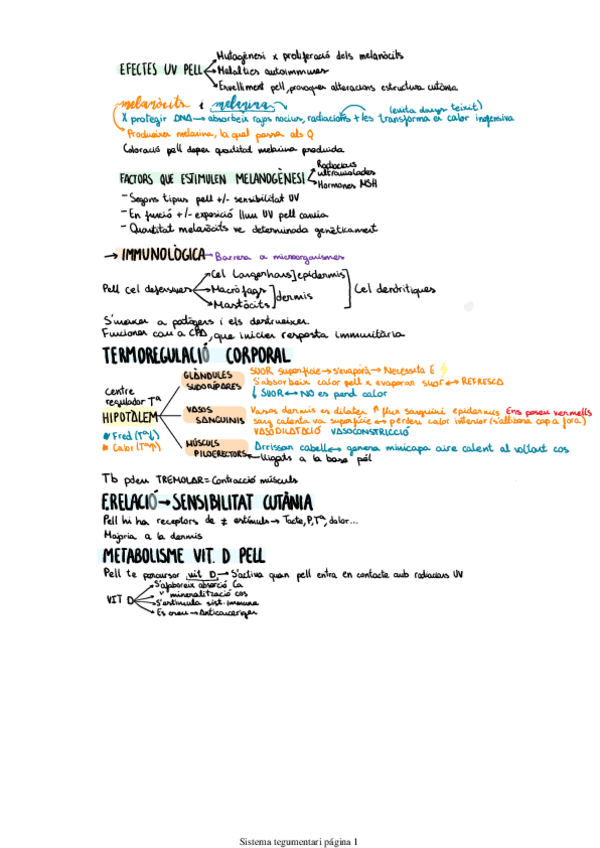 EFECTES UV PELL
Mutagènesi x proliferació dels melanòcits
Malalties autoimmunes
Envelliment pell, provoquen alteracions estructura cutània
melanòcits i melanina
(evita danys teixit)
X protegir DNA → absorbeix rajos nocius, radiacions + les transforma en calor inofensiva
Produeixen melanina, la qual passa als Q
Coloració pell depèn quantitat melanina produïda
FACTORS QUE ESTIMULEN MELANOGÈNESI
Radiacions
ultraviolades
Hormones MSH
- Segons tipus pell +/- sensibilitat UV
- En funció +/- exposició llum UV pell canvia
- Quantitat melanòcits ve determinada genèticament
→ IMMUNOLÒGICA → Barrera a microorganismes
Pell cel defensives
Cel Langerhans] epidermis
Macròfags
Mastòcits
] dermis
] Cel dendrítiques
S'uneixen a patògens i els destrueixen
Funcionen com a CPA, que inicien resposta immunitària
TERMOREGULACIÓ CORPORAL
centre
regulador Tª
HIPOTÀLEM
Fred (Tª↓)
Calor (Tª↑)
GLÀNDULES
SUDORÍPARES
SUOR superfície → s'evapora → Necessita E ⚡
S'absorbeix calor pell x evaporar suor ↔ REFRESCA
↓ SUOR ↔ NO es perd calor
VASOS
SANGUINIS
Vasos dermis es dilaten ↑ flux sanguini epidermis Ens posem vermells
sang calenta va superfície ↔ perdem calor interior (s'allibera cap a fora)
VASODILATACIÓ VASOCONSTRICCIÓ
MÚSCULS
PILOERECTORS
Arrissan cabell ↔ genera minicapa aire calent al voltant cos
lligats a la base pèl
Tb podem TREMOLAR = Contracció músculs
E.RELACIÓ → SENSIBILITAT CUTÀNIA
Pell hi ha receptors de ≠ estímuls → Tacte, P, Tª, dolor...
Majoria a la dermis
METABOLISME VIT. D PELL
Pell té percursor vit D → S'activa quan pell entra en contacte amb radiacions UV
VIT D
S'afavoreix absorció Ca
" mineralització cos
S'estimula sist. immune
Es creu → Anticancerigen
Sistema tegumentari página 1